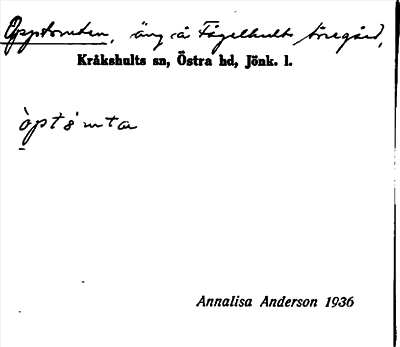 Opptomten, äng å Fågelhult Norregård,
Kråkshults sn, Östra hd, Jönk. l.
òpt
Annalisa Anderson 1936